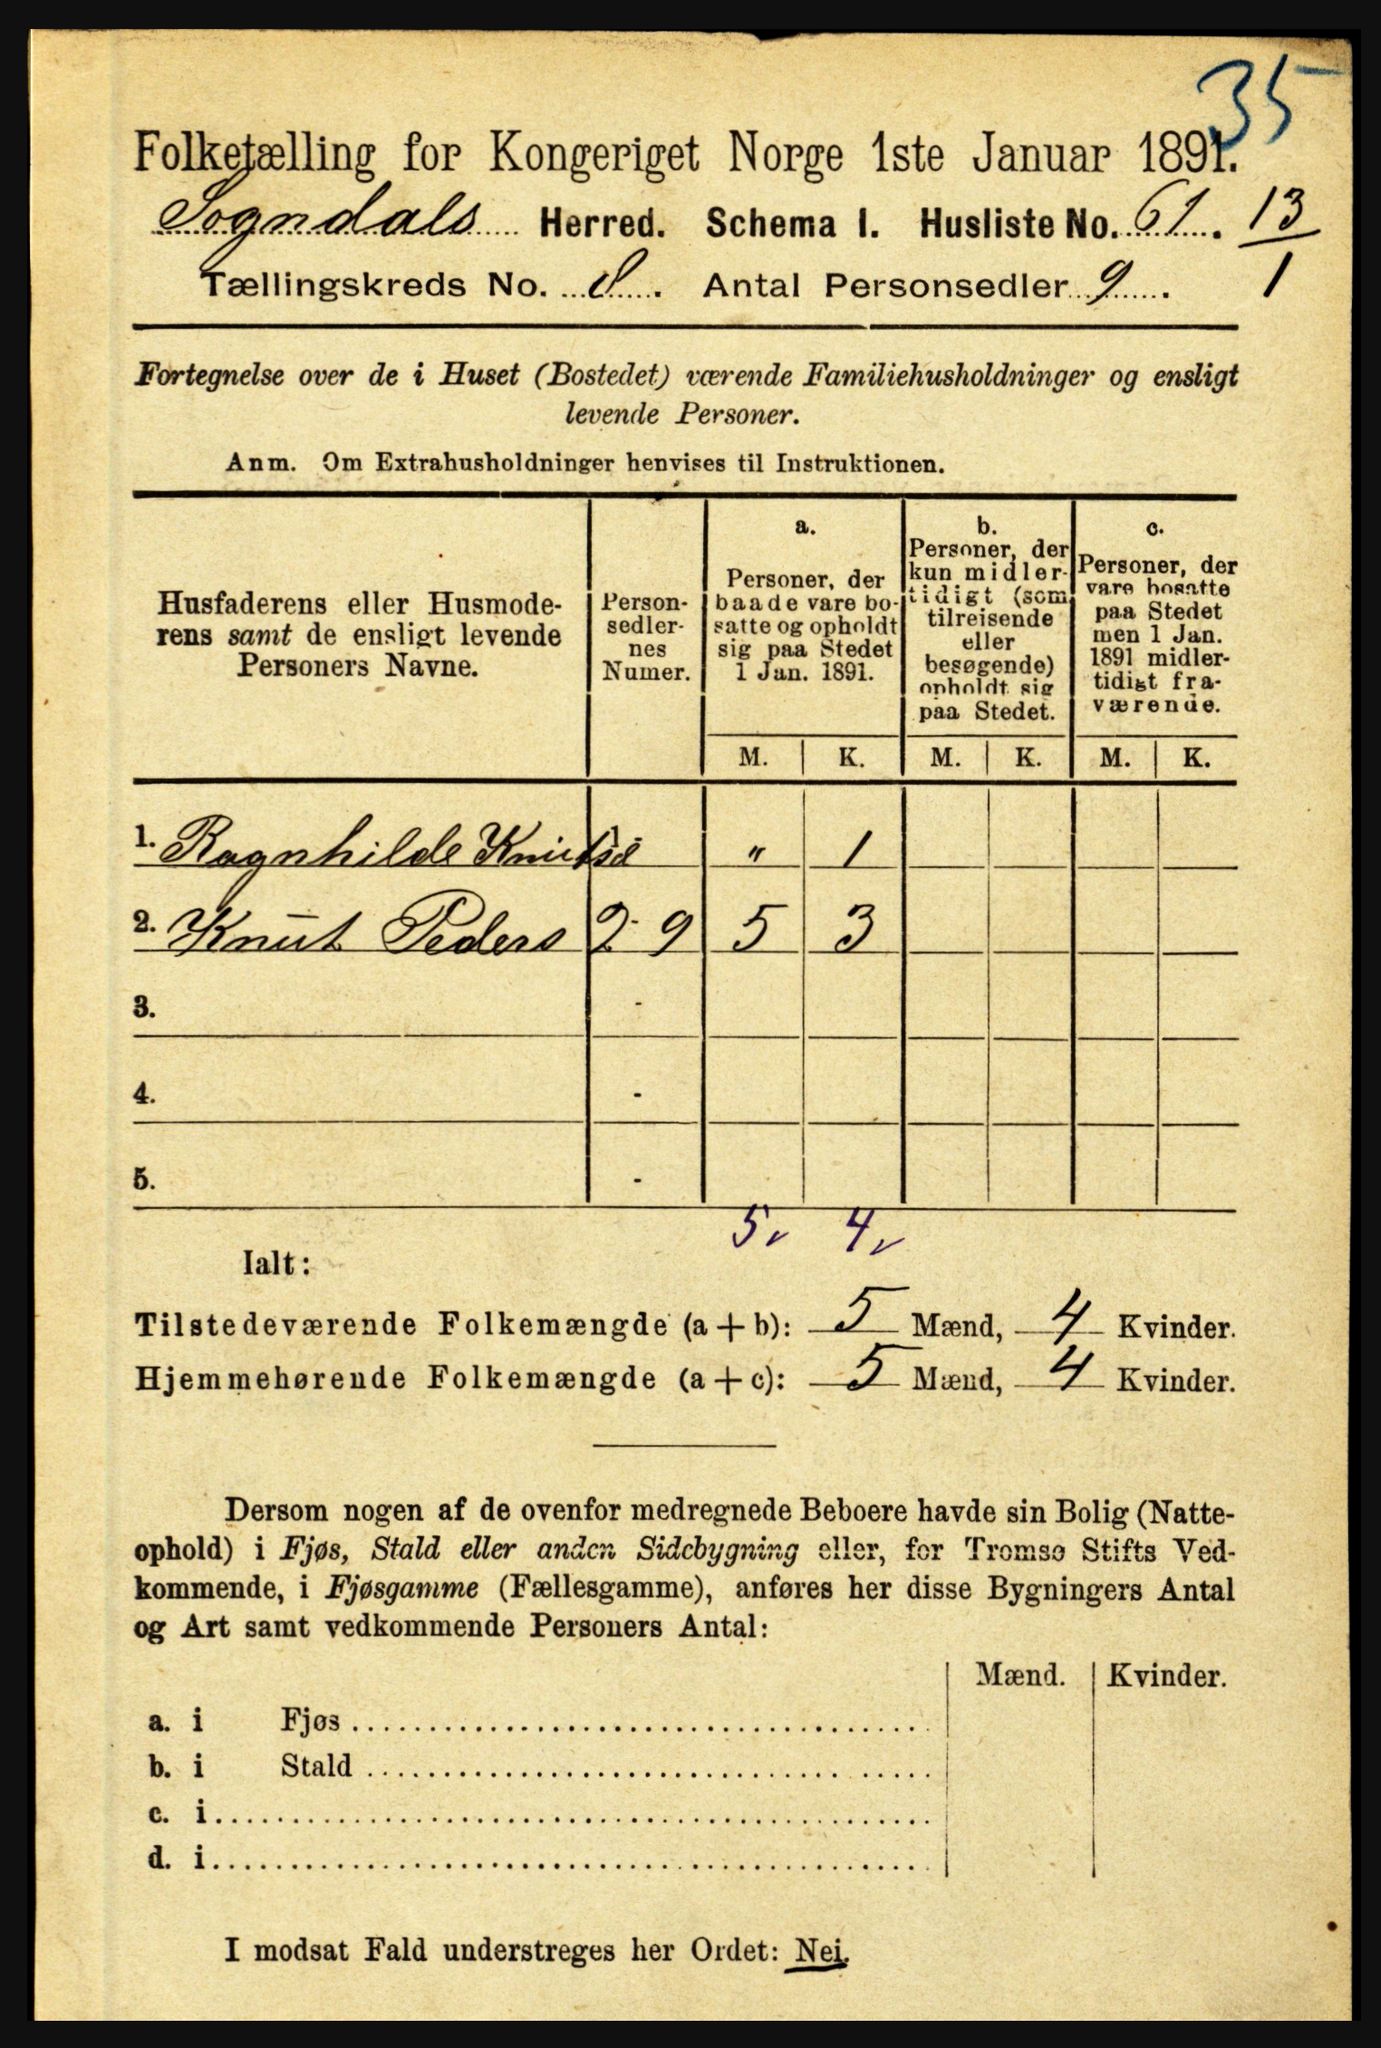 35
Folketælling for Kongeriget Norge 1ste Januar 1891.
Sogndals Herred. Schema I. Husliste No. 61. 13
Tællingskreds No. 8. Antal Personsedler 9. 1
Fortegnelse over de i Huset (Bostedet) værende Familiehusholdninger og ensligt
levende Personer.
Anm. Om Extrahusholdninger henvises til Instruktionen.
Husfaderens eller Husmode-
rens samt de ensligt levende
Personers Navne.
Person-
sedler-
nes
Numer.
a.
Personer, der
baade vare bo-
satte og opholdt
sig paa Stedet
1 Jan. 1891.
b.
Personer, der
kun midler-
tidigt (som
tilreisende
eller
besøgende)
opholdt sig
paa Stedet.
c.
Personer, der
vare bosatte
paa Stedet
men 1 Jan.
1891 midler-
tidigt fra-
værende.
M. K. M. K. M. K.
1. Ragnhilde Knutsd " 1
2. Knut Peders 2-9 5 3
3. -
4. -
5. -
5 4
Ialt:
Tilstedeværende Folkemængde (a + b): 5 Mænd, 4 Kvinder.
Hjemmehørende Folkemængde (a + c): 5 Mænd, 4 Kvinder.
Dersom nogen af de ovenfor medregnede Beboere havde sin Bolig (Natte-
ophold) i Fjøs, Stald eller anden Sidebygning eller, for Tromsø Stifts Ved-
kommende, i Fjøsgamme (Fællesgamme), anføres her disse Bygningers Antal
og Art samt vedkommende Personers Antal:
Mænd. Kvinder.
a. i Fjøs
b. i Stald
c. i
d. i
I modsat Fald understreges her Ordet: Nei.